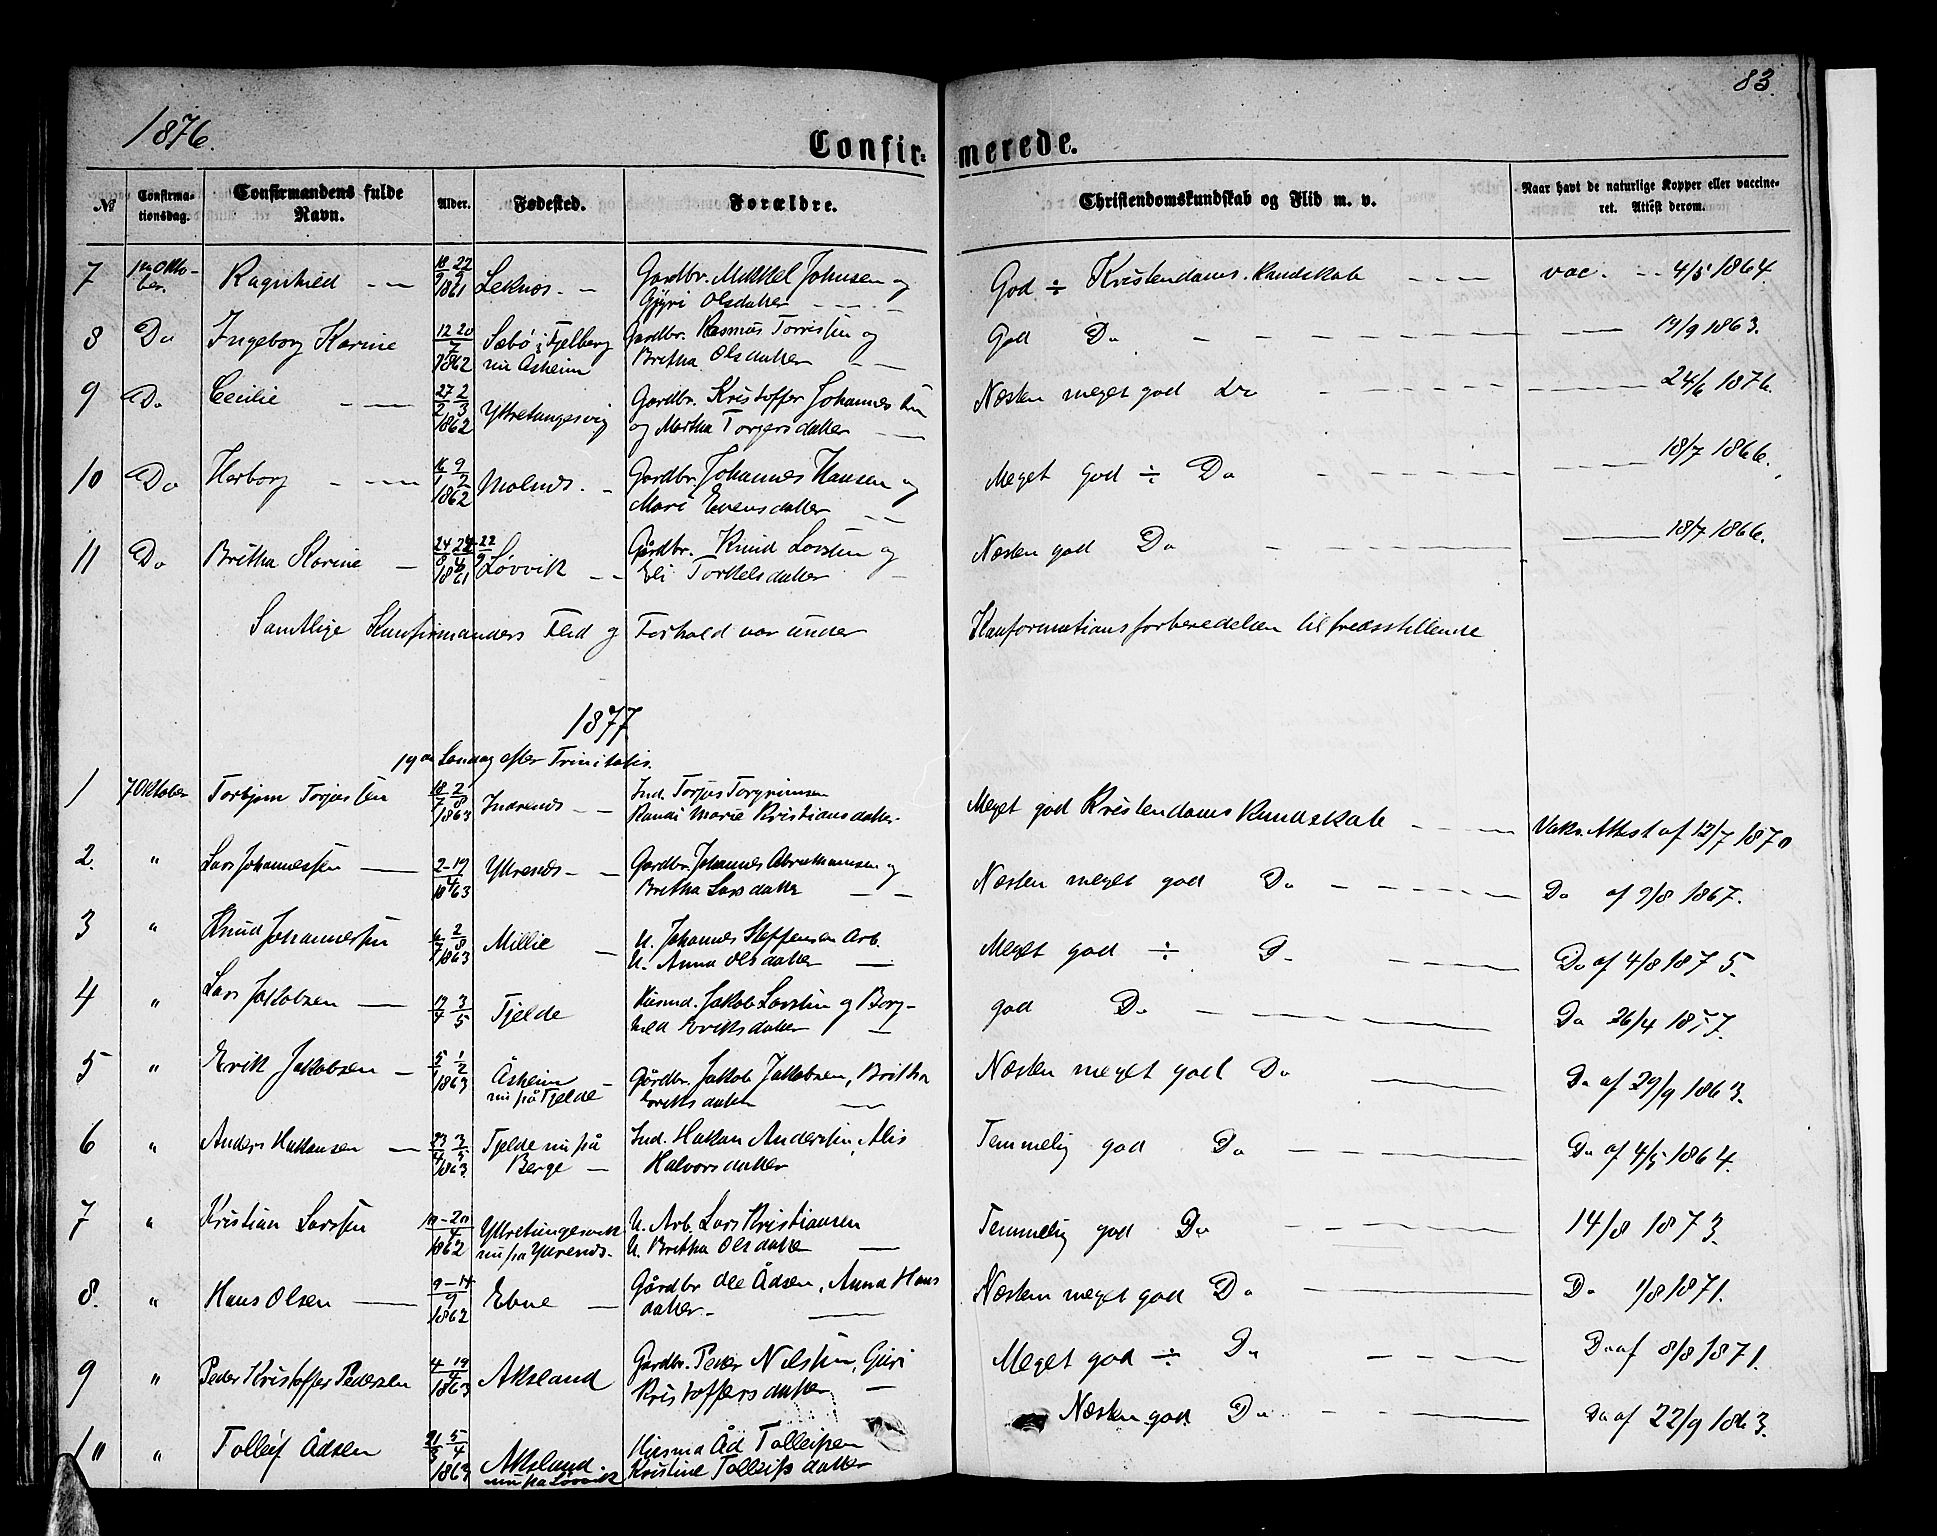 83.
1876.
Confirmerede.
№ Confirmationsdag. Confirmandens fulde Navn. Alder. Fødested. Forældre. Christendomskundskab og Flid m. v. Naar havt de naturlige Kopper eller vaccineret. Attest derom.
7 1ste Oktober. Ragnhild — 18/9 22/9 1861 Leknes — Gardbr. Mikkel Johnsen og Gjyri Olsdatter — God ÷ Kristendoms-Kundskab — vac. — 4/5 1864.
8 Do Ingeborg Karine 12 20/7 1862 Sæbø i Fjelberg nu Asheim Gardbr. Rasmus Torristen og Britha Olsdatter — God Do — 19/9 1863.
9 Do Cecilie — 27/2 2/3 1862 Yttretungesvig Gardbr. Kristoffer Johannesten og Martha Torgersdatter — Næsten meget god Do — 24/6 1876.
10 Do Herborg — 16/1 9/2 1862 Molnes — Gardbr. Johannes Hansen og Mari Evensdatter — Meget god ÷ Do — 18/7 1866.
11 Do Britha Karine — 24/8 22/9 1861 Løvvik — Gårdbr. Knud Larsten og Eli Torkelsdatter — Næsten god Do — 18/7 1866.
Samtlige Konfirmanders Flid og Forhold var under Konformationsforberedelsen tilfredsstillende
1877
19de Søndag efter Trinitatis.
1 7 Oktober Torbjørn Torjusten 18/7 2/8 1863 Indrenes — Ind. Torjus Torgrimsen Randi Marie Kristiansdatter Meget god Kristendoms Kundskab — Vaks. Attest af 12/7 1870
2. " Lars Johannesten — 2-19/4 63 Yttrenes — Gardbr. Johannes Abrahamsen og Britha Larsdatter — Næsten meget god Do — Do af 2/8 1867.
3 " Knud Johannesten 6/7 2/8 1863 Millie — U. Johannes Steffensen Arb. U. Anna Olsdatter — Meget god ÷ D. — Do af 4/8 1875.
4 " Lars Jakobsen — 13/4 3/5 Tjelde Husmd. Jakob Larsten og Borghild Eriksdatter — god Do — Do 26/4 1877.
5 " Erik Jakobsen — 5/1 1/2 1863 Åsheim nu på Tjelde — Gårdbr. Jakob Jakobsen, Britha Eriksdatter — Næsten meget god Do — Do af 29/9 1863.
6 " Anders Hakonsen — 23/4 3/5 1863 Tjelde nu på Berge — Ind. Hakon Andersten, Alis Halvorsdatter Temmelig god Do — Do af 4/5 1864.
7 " Kristian Larsten 10-20/4 1862 Yttretungesvik nu på Yttrenes. U. Arb. Lars Kristiansen U. Britha Olsdatter — Temmelig god Do — 14/8 1873.
8. " Hans Olsen — 9-14/9 1862 Ebne — Gårdbr Ole Ådsen, Anna Hansdatter — Næsten meget god Do — Do 1/8 1871.
9 " Peder Kristoffer Pedersen 4-19/4 1863 Aksland Gardbr. Peder Nilsten, Guri Kristoffersdatter — Meget god ÷ Do — Do af 8/8 1871.
10 " Tolleif Ådsen 21/3 5/4 1863 Aksland. nu på Løvvik Husmd Åd Tolleifsen Kristine Tolleifsdatter Næsten god Do — Do af 22/9 1863.